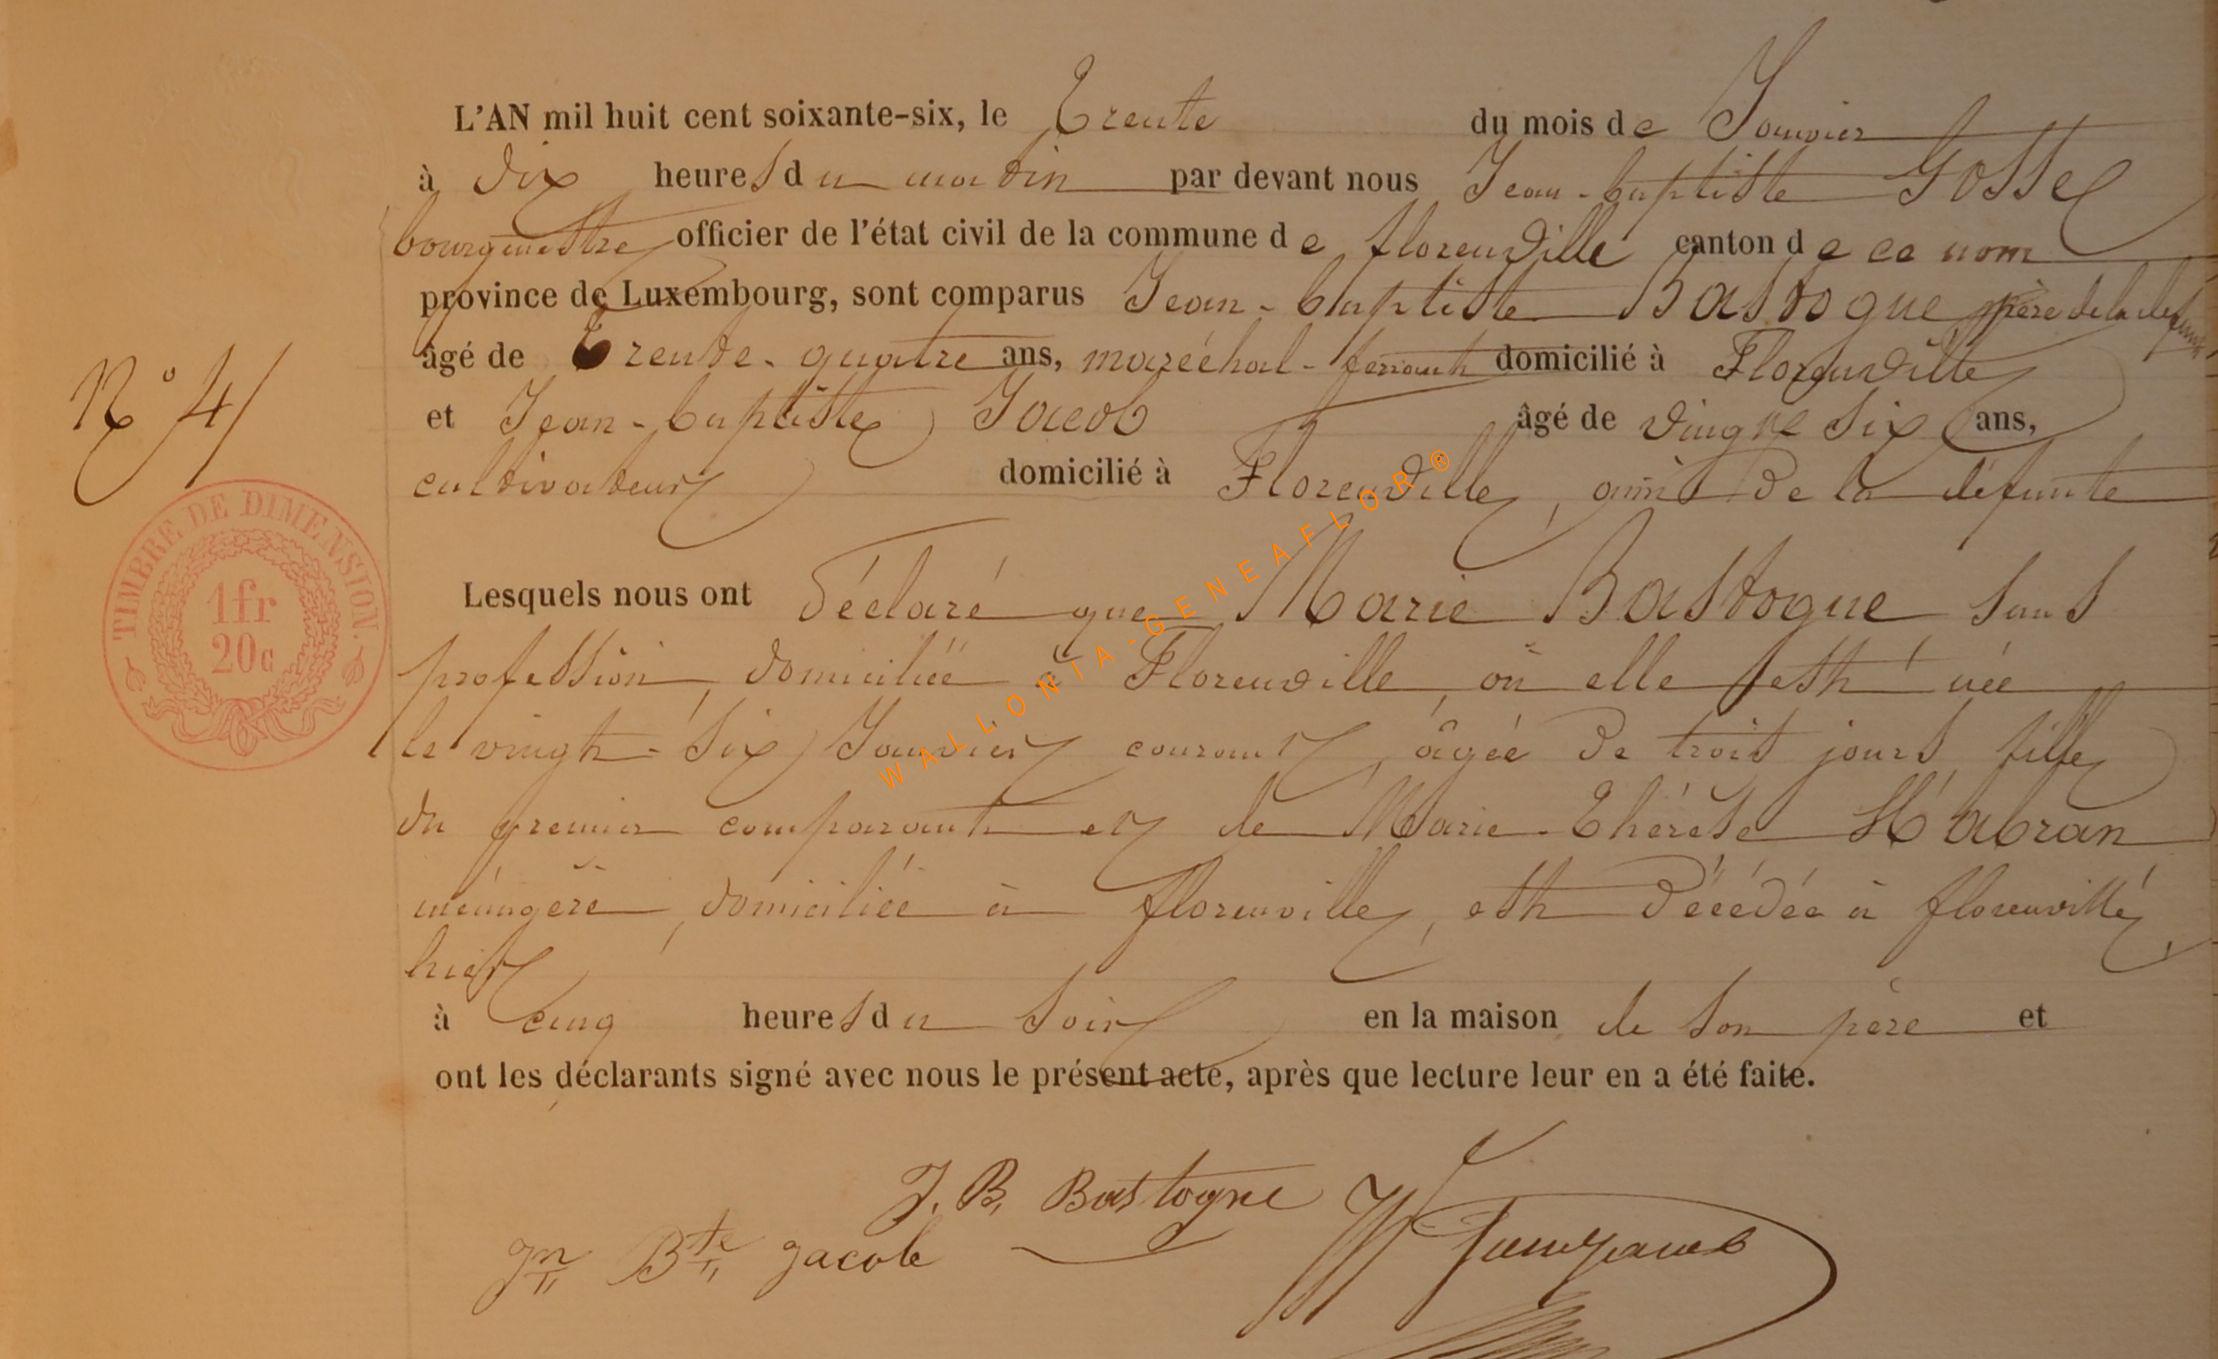 L'AN mil huit cent soixante-six, le Trente du mois de Janvier
à dix heures du matin par devant nous Jean-baptiste Gosse
bourgmestre officier de l'état civil de la commune de florenville canton de ce nom
province de Luxembourg, sont comparus Jean-baptiste Bastogne père de la défunte
âgé de Trente-quatre ans, maréchal-ferrant domicilié à Florenville
N° 4
et Jean-baptiste Jacob âgé de vingt six ans,
cultivateur domicilié à Florenville, ami de la défunte
TIMBRE DE DIMENSION.
1fr
20c
Lesquels nous ont déclaré que Marie Bastogne sans
profession, domiciliée à Florenville, où elle est née
le vingt-six Janvier courant, âgée de trois jours, fille
du premier comparant et de Marie-Thérèse Habran
ménagère, domiciliée à florenville, est décédée à florenville,
hier
à cinq heures du soir en la maison de son père et
ont les déclarants signé avec nous le présent acte, après que lecture leur en a été faite.
J. B. Bastogne
Jn Bte Jacob
WALLONIA-GENEAFLOR®